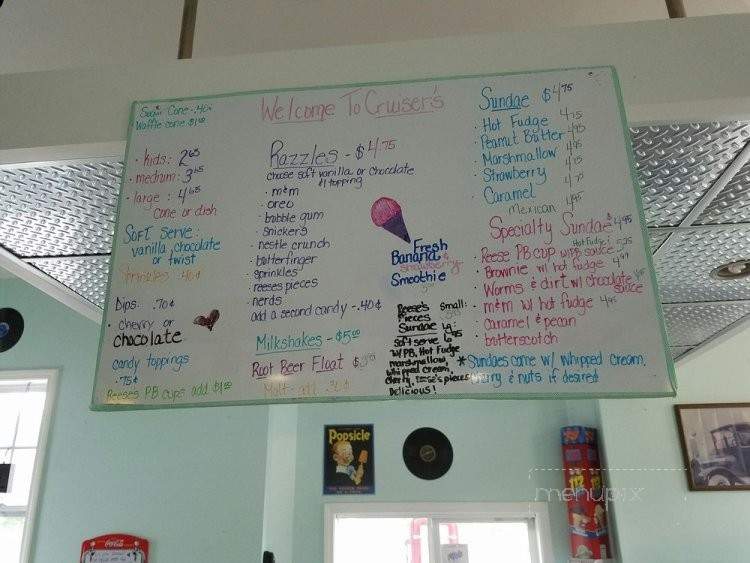 Sugar Cone - .40¢
Waffle cone $1.00
Welcome To Cruiser's
• kids: 2.65
• medium: 3.65
• large: 4.65
cone or dish
Soft serve:
vanilla, chocolate
or twist
Sprinkles .40¢
Dips .70¢
• cherry or
chocolate
candy toppings
.75¢
Reeses PB cups add $1.00
Razzles - $4.75
choose soft vanilla or chocolate
& 1 topping
• m&m
• oreo
• bubble gum
• snickers
• nestle crunch
• butterfinger
• sprinkles
• reeses pieces
• nerds
add a second candy - .40¢
Milkshakes - $5.00
Root Beer Float
Malt add .30¢
Fresh
Banana &
Strawberry
Smoothie
Reese's
Pieces
Sundae
Small:
Lg
6.95
Soft serve
W/PB, Hot Fudge
marshmallow,
whipped cream,
cherry, reese's pieces
Delicious!
Sundae $4.75
• Hot Fudge 4.75
• Peanut Butter 4.95
• Marshmallow 4.95
• Strawberry 4.75
• Caramel 4.75
Mexican 4.95
Specialty Sundae $4.95
Hot Fudge
• Reese PB cup w/PB sauce
• Brownie w/ hot fudge 4.99
• Worms & dirt w/ chocolate
sauce
• m&m w/ hot fudge 4.95
• caramel & pecan
• butterscotch
*Sundaes come w/ whipped cream,
cherry & nuts if desired
Popsicle
Coca-Cola
menupix